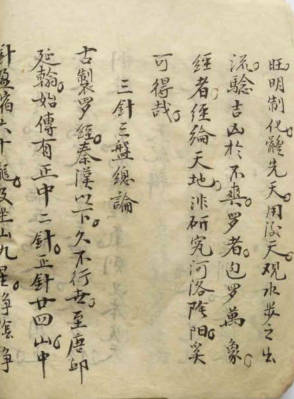 旺明制化體先天用後天观水步之出
流驗吉凶於不爽罗者包罗萬象
經者经綸天地非研究河洛陰阳奚
可得哉
三針三盤總論
古製罗经秦漢以下久不行世至唐邱
延翰始傳有正中二針正針廿四山中
針盈縮六十龍及坐山九星净陰净